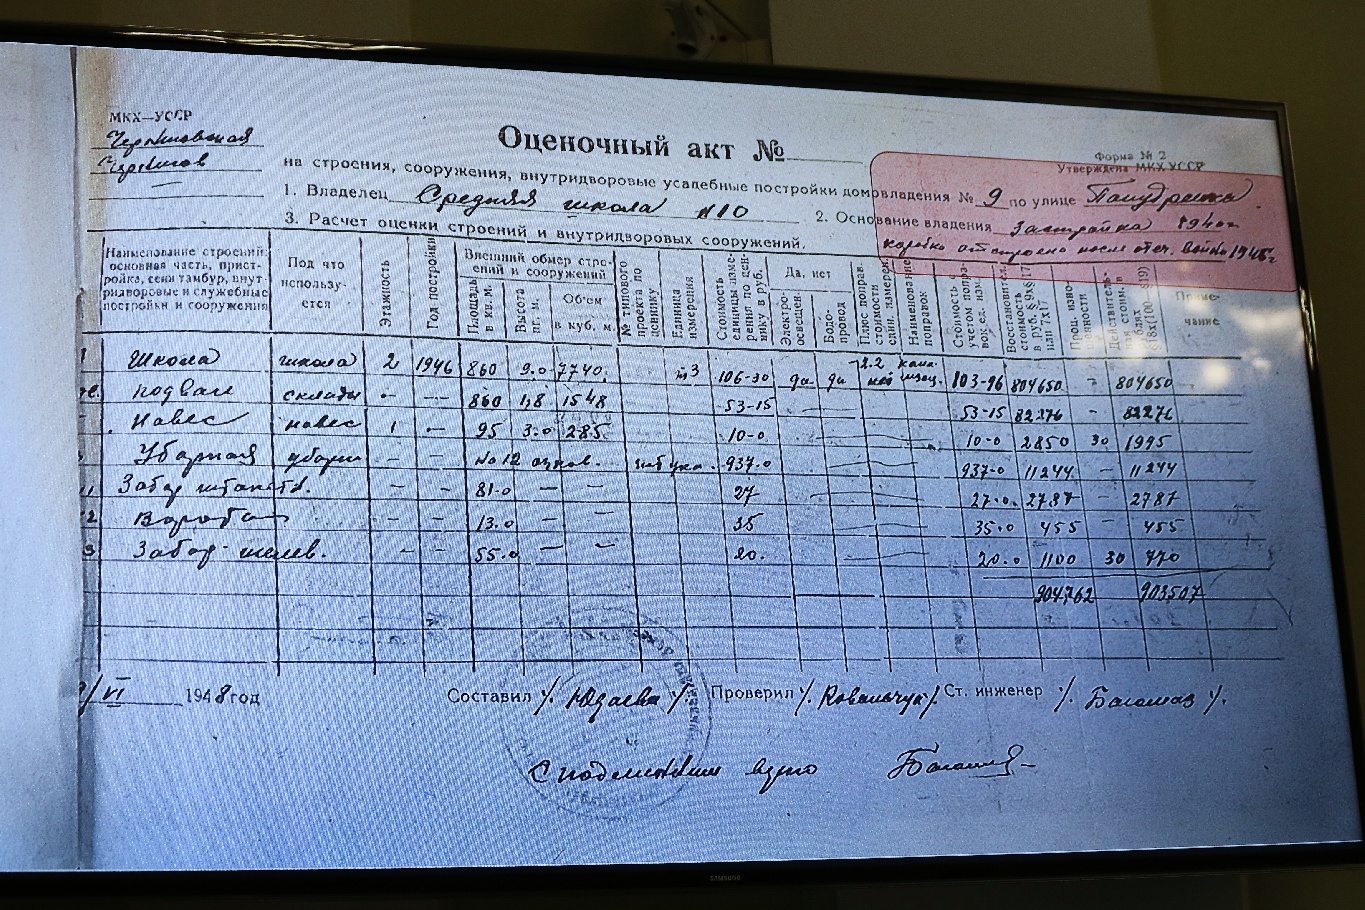 МКХ—УССР
Черниговская
Чернигов
Оценочный акт №
Форма № 2
Утверждена МКХ УССР
на строения, сооружения, внутридворовые усадебные постройки домовладения № 9 по улице
1. Владелец Средняя школа №10 2. Основание владения Застройка 1940г
коробка отстроена после отеч. войны 1945г
3. Расчет оценки строений и внутридворовых сооружений.
Наименование строений: основная часть, пристройка, сени тамбур, внутридворовые и служебные постройки и сооружения
Под что используется
Этажность
Год постройки
Внешний обмер строений и сооружений
Площадь в кв. м.
Высота в п. м.
Об'ем в куб. м.
№ типового проекта по ценнику
Единица измерения
Стоимость единицы измерения по ценнику в руб.
Да, нет
Электроосвещен.
Водопровод
Плюс поправ. стоимости един. измерен.
Наименование поправок
Стоимость с учетом поправок ед. изм.
Восстановител. стоимость в руб.
Проц. изношенности
Действительная стоим. в рублях
Примечание
1 Школа школа 2 1946 860 9.0 7740 м3 106-30 да да 103-96 804650 - 804650
подвал склады - — 860 1,8 1548 53-15 53-15 82276 - 82276
Навес навес 1 — 95 3.0 285 10-0 10-0 2850 30 1995
Уборная уборн — — на 12 очков. штука. 937-0 937-0 11244 — 11244
Забор штакетн. — — 81-0 — — 27 27-0 2787 - 2787
2 Ворота — — 13.0 — — 35 35.0 455 — 455
3 Забор шелев. — — 55.0 — — 20. 20.0 1100 30 770
904762 903507
VI 1948 год Составил Юдаева Проверил /Ковальчук/ Ст. инженер
С подлинным верно
SAMSUNG